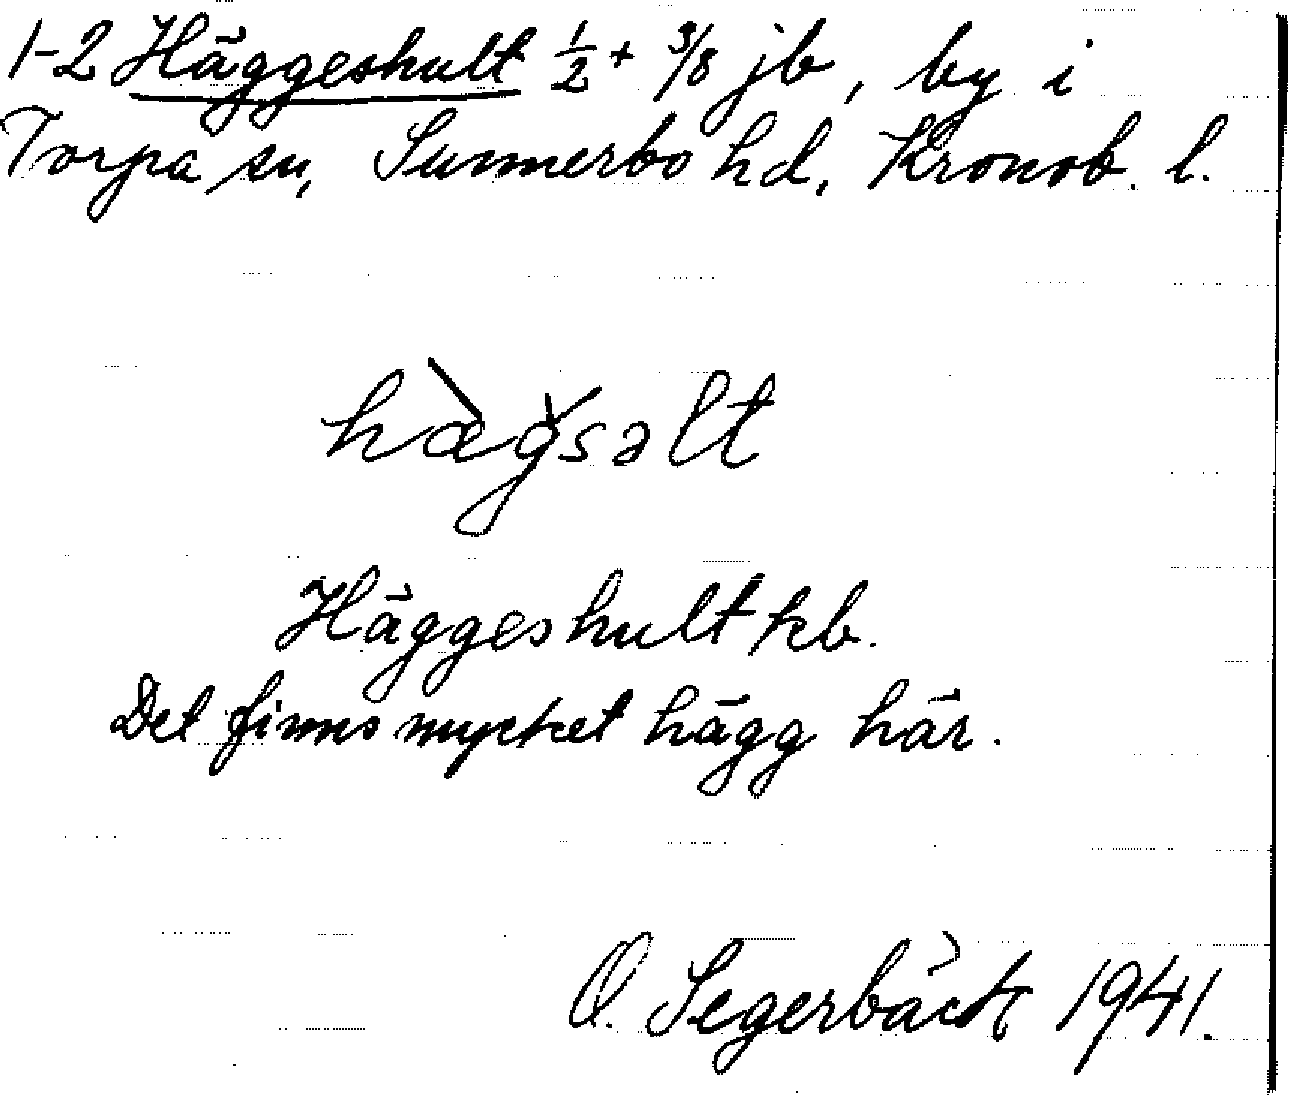 1-2 Häggeshult 1/2 + 3/8 jb, by i
Torpa sn, Sunnerbo hd, Kronob. l.
hæ̀gsəlt
Häggeshult kb.
Det finns mycket hägg här.
O. Segerbäck 1941.